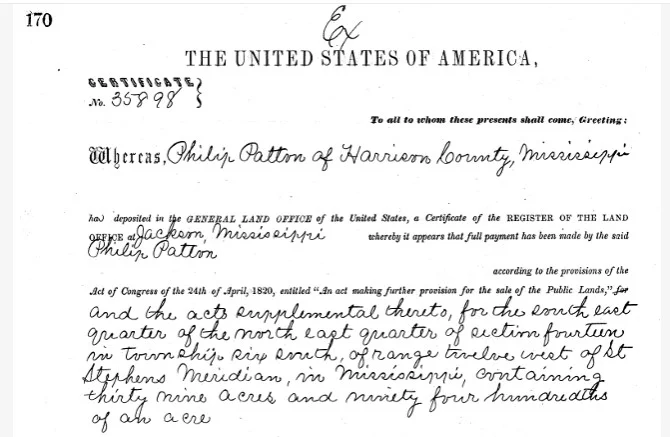 170
Ex
THE UNITED STATES OF AMERICA,
CERTIFICATE
No. 35898
To all to whom these presents shall come, Greeting:
Whereas, Philip Patton of Harrison County, Mississippi
has deposited in the GENERAL LAND OFFICE of the United States, a Certificate of the REGISTER OF THE LAND
OFFICE at Jackson, Mississippi whereby it appears that full payment has been made by the said
Philip Patton
according to the provisions of the
Act of Congress of the 24th of April, 1820, entitled "An act making further provision for the sale of the Public Lands," for
and the acts supplemental thereto, for the south east
quarter of the north east quarter of section fourteen
in Township six south, of range twelve west of St
Stephens Meridian, in Mississippi, containing
thirty nine acres and ninety four hundredths
of an acre